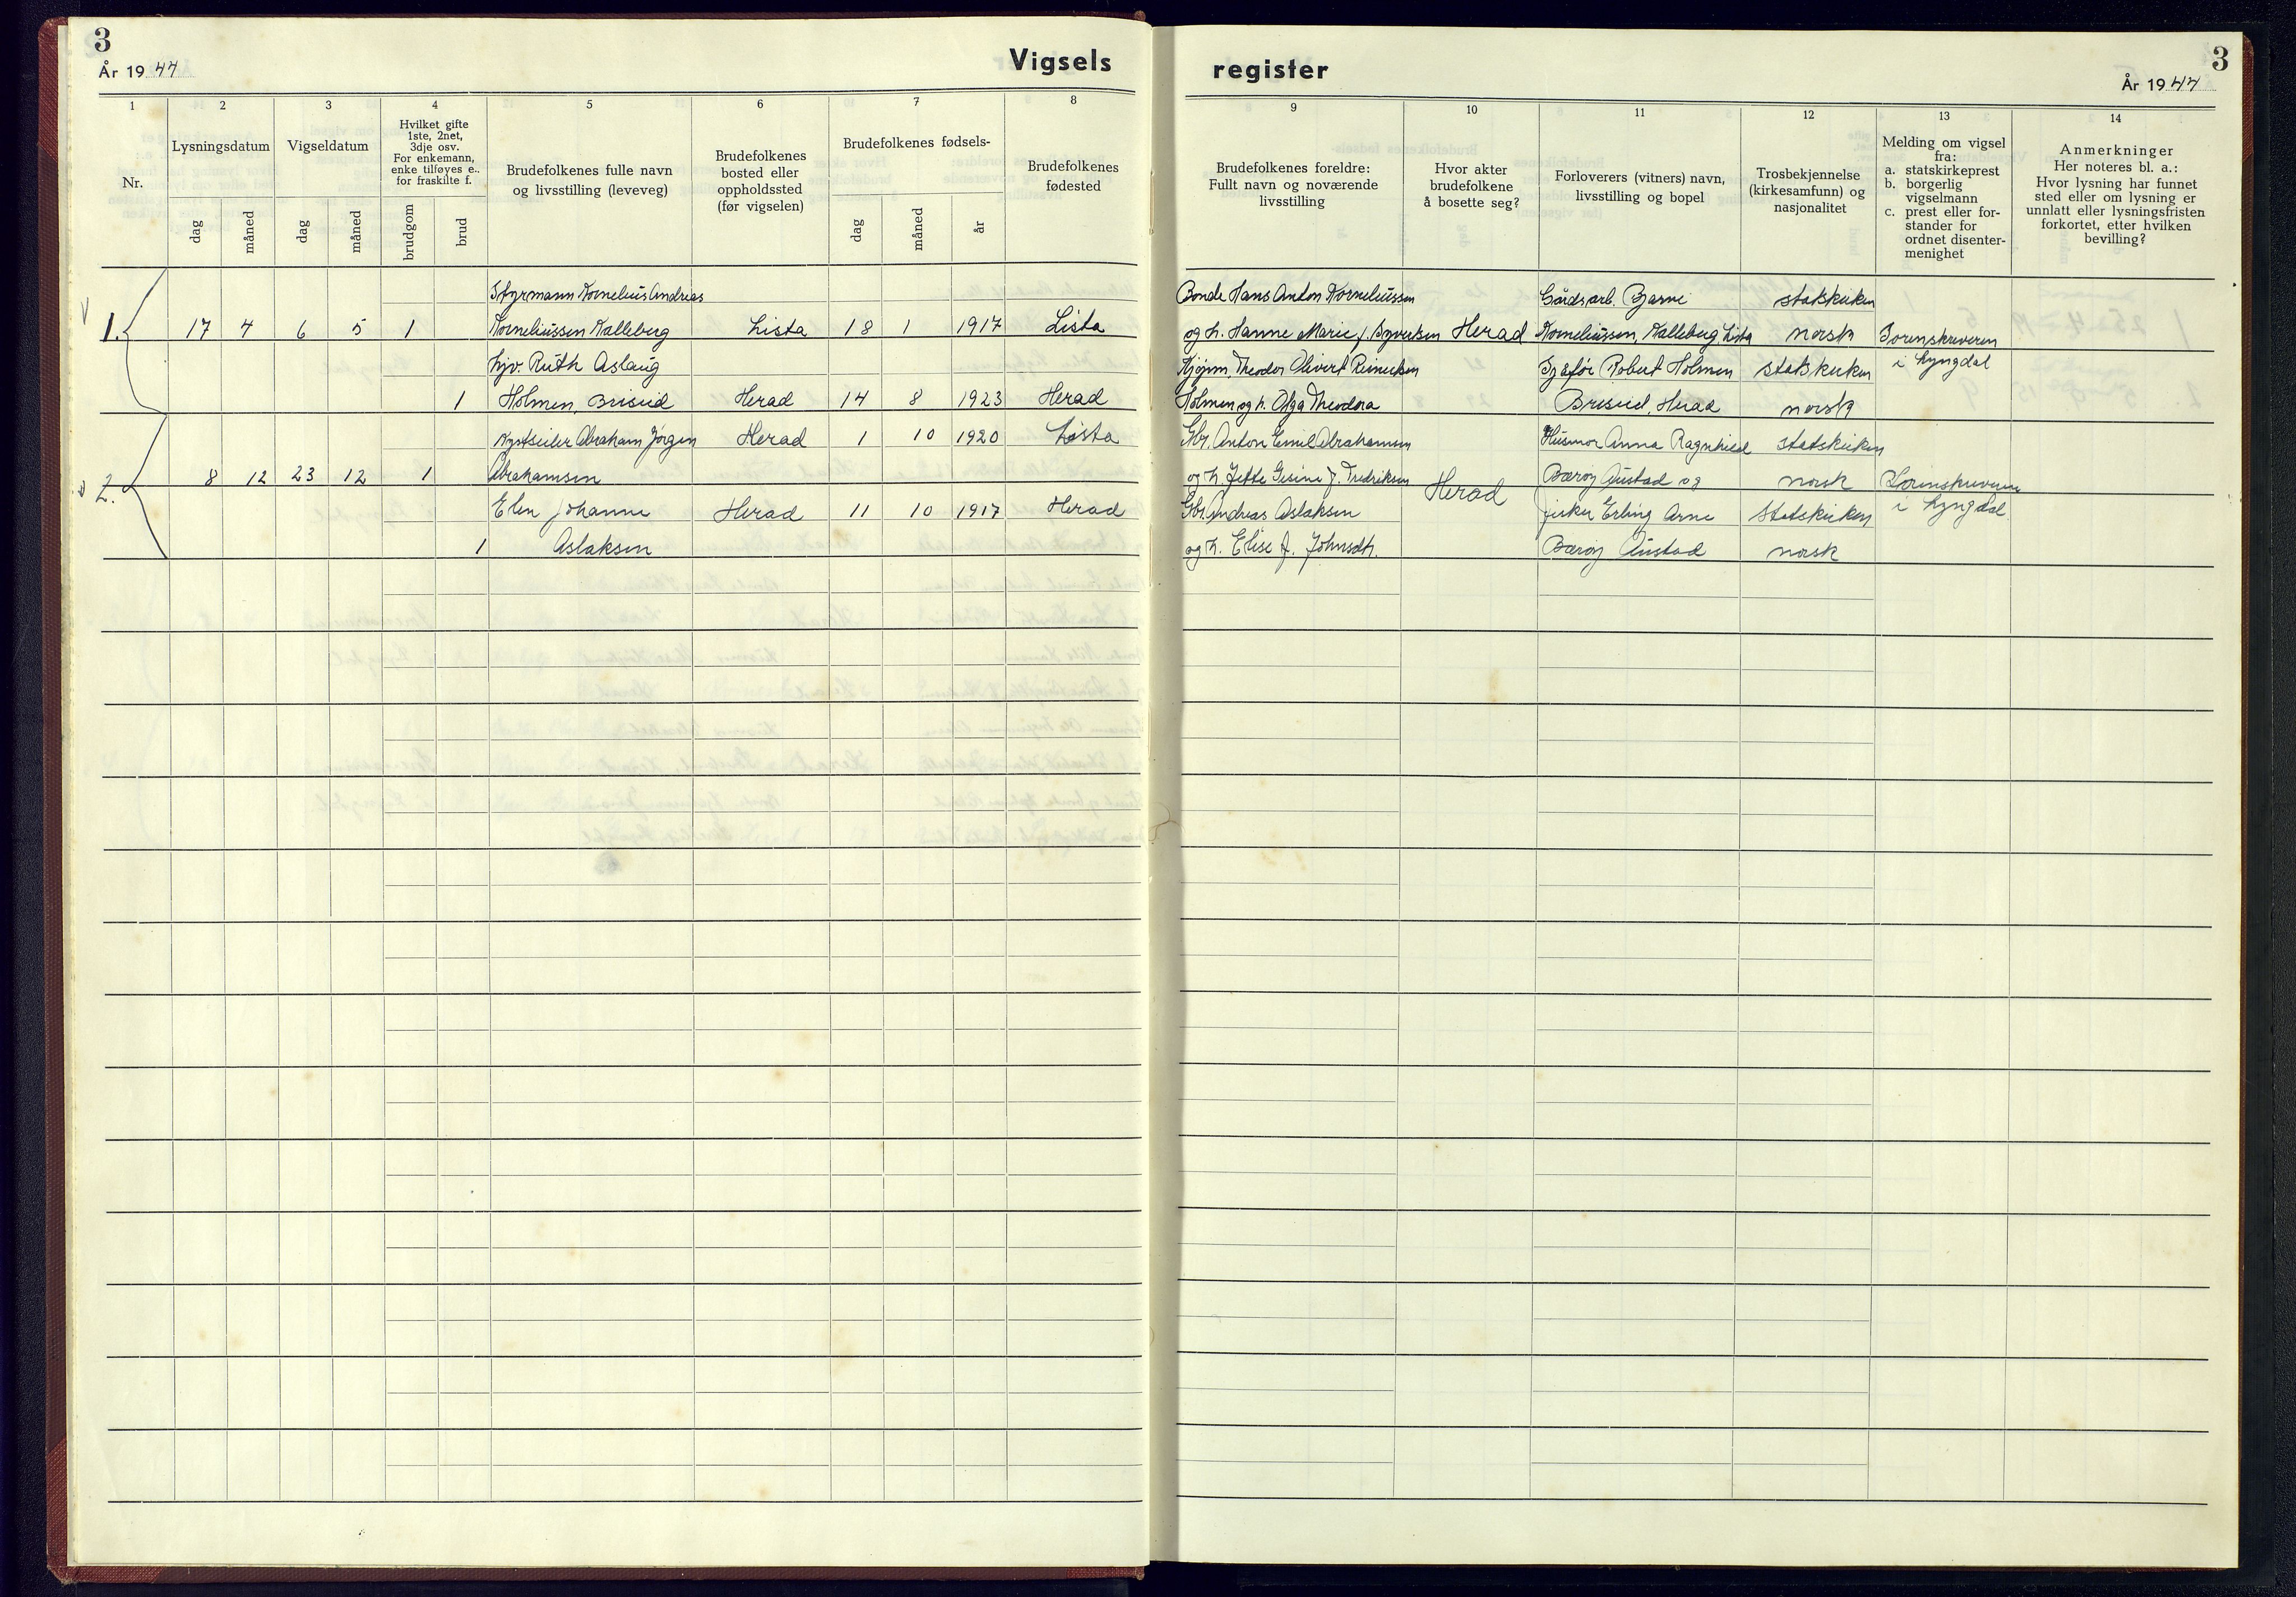 3
År 1947
Vigsels
1 2 3 4 5 6 7 8
Nr.
Lysningsdatum
Vigseldatum
Hvilket gifte
1ste, 2net,
3dje osv.
For enkemann,
enke tilføyes e.,
for fraskilte f.
Brudefolkenes fulle navn
og livsstilling (leveveg)
Brudefolkenes
bosted eller
oppholdssted
(før vigselen)
Brudefolkenes fødsels-
Brudefolkenes
fødested
dag måned dag måned brudgom brud dag måned år
Styrmann Kornelius Andreas
1. 17 4 6 5 1 Korneliussen Kalleberg Lista 18 1 1917 Lista
hjv. Ruth Aslaug
1 Holmen, Briseid Herad 14 8 1923 Herad
Abraham Jørgen Herad 1 10 1920 Lista
2. 8 12 23 12 1 Abrahamsen
Elen Johanne Herad 11 10 1917 Herad
1 Aslaksen
register
3
År 1947
9 10 11 12 13 14
Brudefolkenes foreldre:
Fullt navn og noværende
livsstilling
Hvor akter
brudefolkene
å bosette seg?
Forloverers (vitners) navn,
livsstilling og bopel
Trosbekjennelse
(kirkesamfunn) og
nasjonalitet
Melding om vigsel
fra:
a. statskirkeprest
b. borgerlig
vigselmann
c. prest eller for-
stander for
ordnet disenter-
menighet
Anmerkninger
Her noteres bl. a.:
Hvor lysning har funnet
sted eller om lysning er
unnlatt eller lysningsfristen
forkortet, etter hvilken
bevilling?
Bonde Hans Anton Korneliussen Gårdsarb. Bjarne statskirken
og h. Hanne Marie f. Herad Korneliussen, Kalleberg Lista norsk Sorenskriveren
Theodor Olivert Reinertsen Sjåfør Robert Holmen statskirken i Lyngdal
Holmen og h. Olga Theodora Briseid, Herad norsk
Gbr. Anton Emil Abrahamsen Husmor Anna Ragnhild statskirken
og h. Jette Gesine f. Fredriksen Herad Barøy Austad og norsk Sorenskriveren
Gbr. Andreas Aslaksen Erling Arne statskirken i Lyngdal
og h. Elise f. Johnsdtr. Barøy Austad norsk